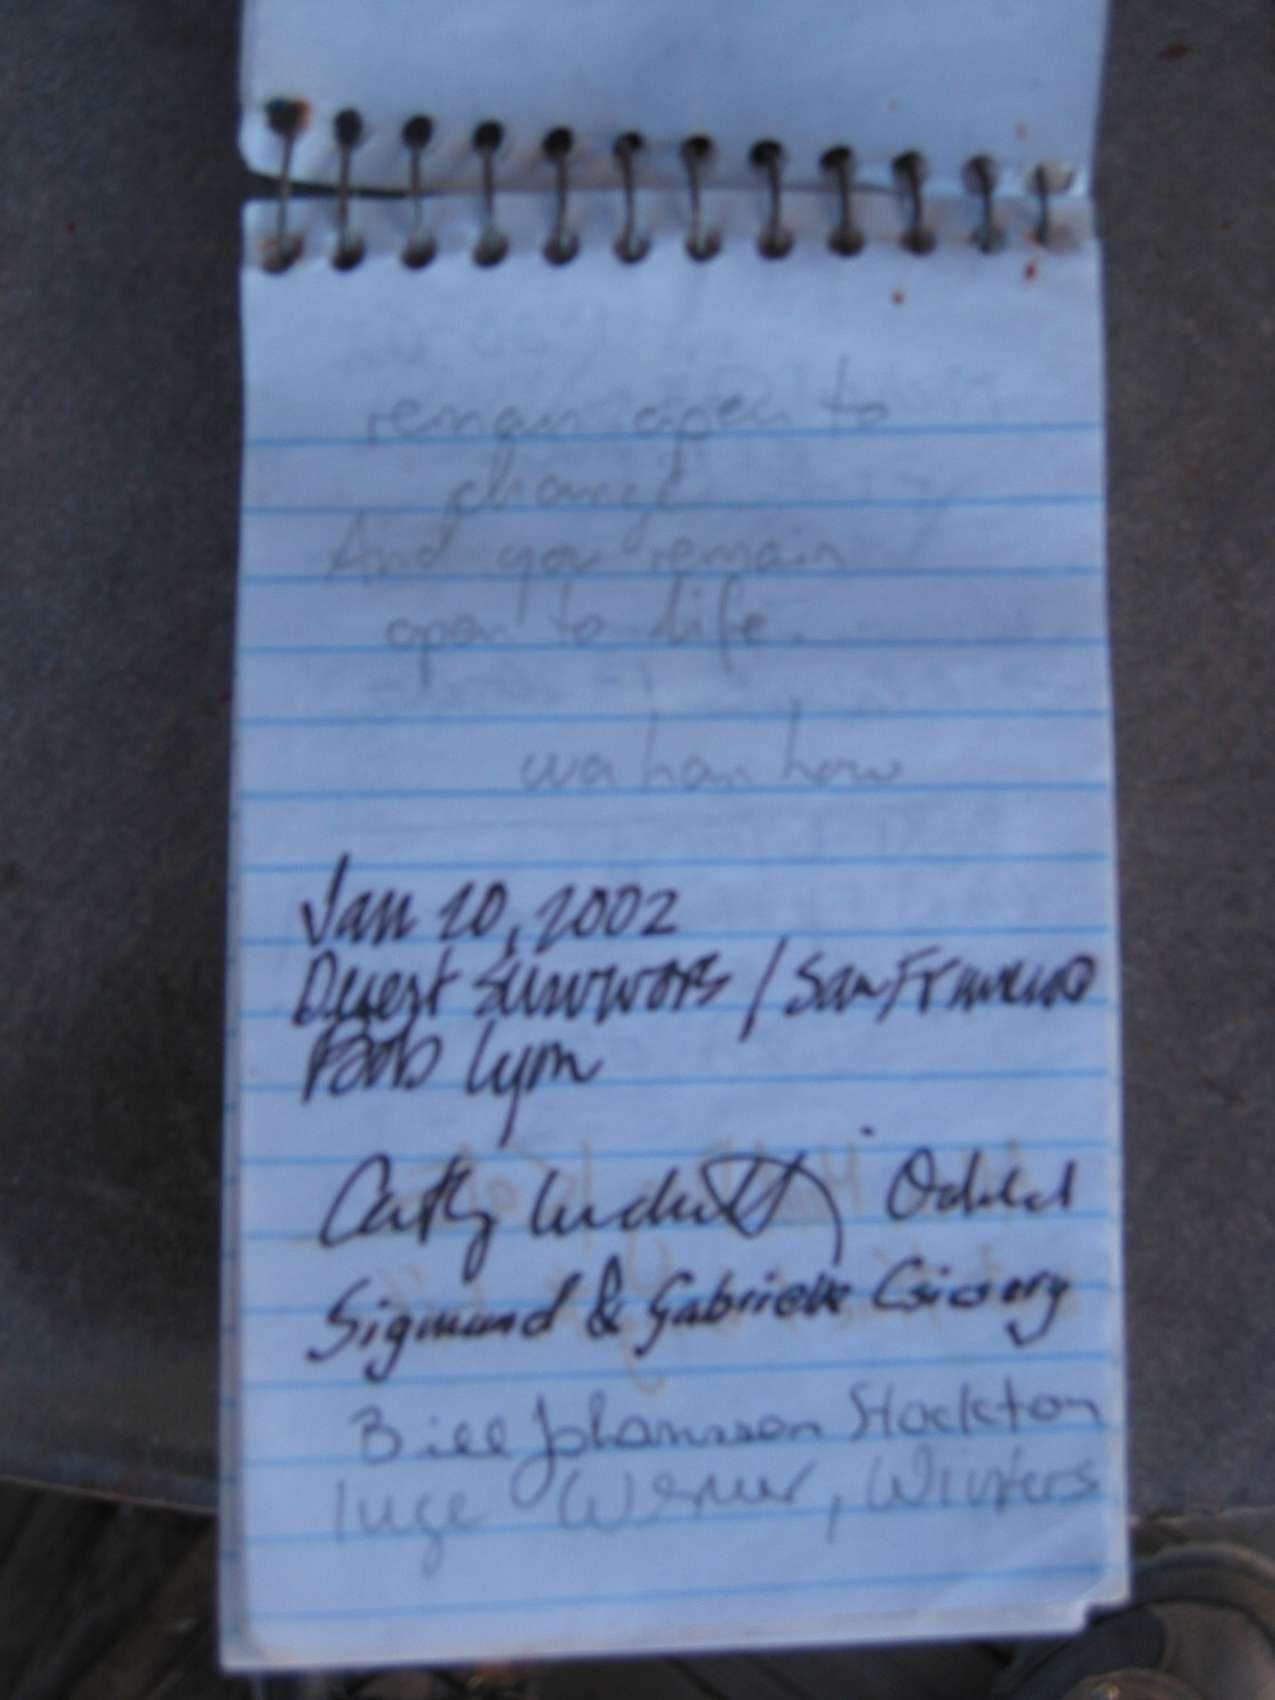 remain open to
change
And you remain
open to life.
wa han how
Jan 20, 2002
Desert Survivors / San Francisco
Bob Lyon
Cathy Luchetti Oddel
Sigmund & Gabrielle Csicsery
Bill Johansson Stockton
Inge Werner, Winters